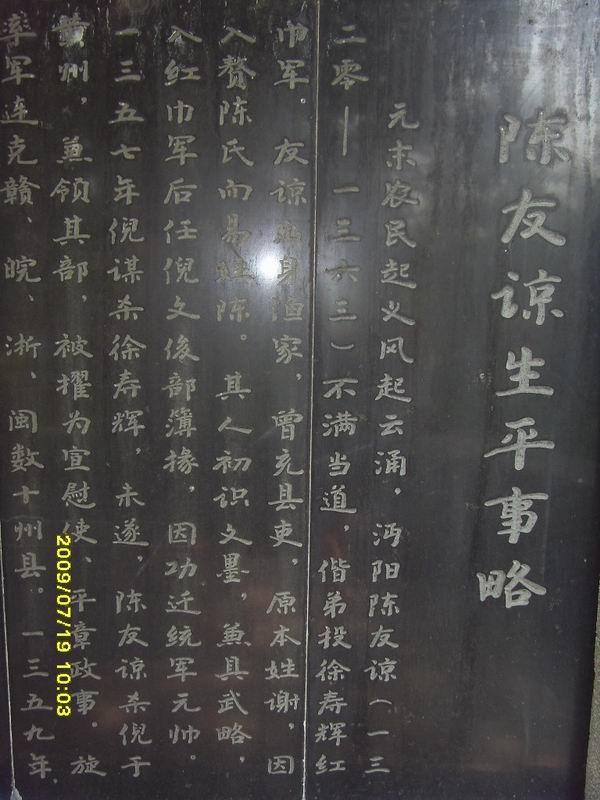 陈友谅生平事略
元末农民起义风起云涌，沔阳陈友谅（一三
二零——一三六三）不满当道，偕弟投徐寿辉红
巾军。友谅出身渔家，曾充县吏，原本姓谢，因
入赘陈氏而易姓陈。其人初识文墨，兼具武略，
入红巾军后任倪文俊部簿掾，因功迁统军元帅。
一三五七年倪谋杀徐寿辉，未遂，陈友谅杀倪于
黄州，兼领其部，被擢为宣慰使、平章政事。旋
率军连克赣、皖、浙、闽数十州县。一三五九年
2009/07/19 10:03